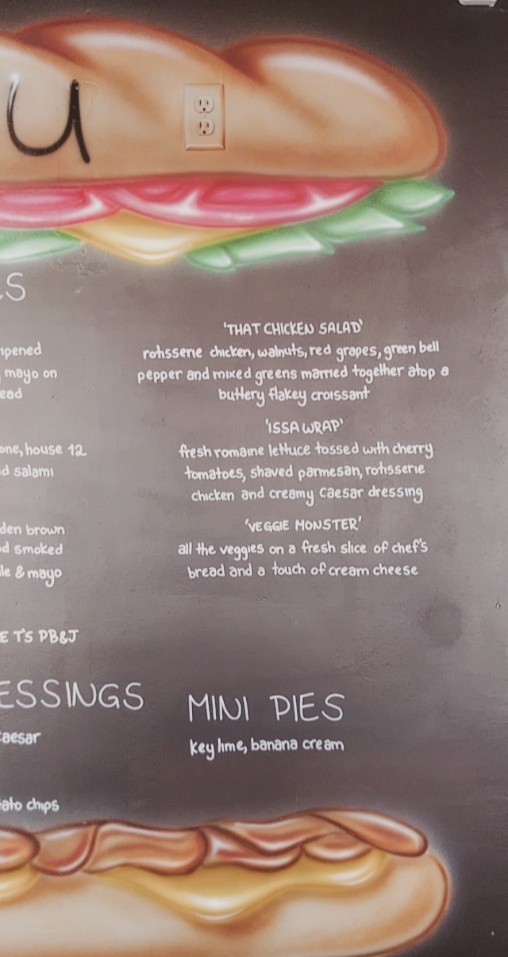 u
LS
ipened
mayo on
ead
one, house 12
d salami
den brown
d smoked
le & mayo
E T'S PB&J
'THAT CHICKEN SALAD'
rotissene chicken, walnuts, red grapes, green bell
pepper and mixed greens married together atop a
buttery flakey croissant
'ISSA WRAP'
fresh romaine lettuce tossed with cherry
tomatoes, shaved parmesan, rotisserie
chicken and creamy caesar dressing
'VEGGIE MONSTER'
all the veggies on a fresh slice of chef's
bread and a touch of cream cheese
ESSINGS
caesar
ato chips
MINI PIES
key lime, banana cream